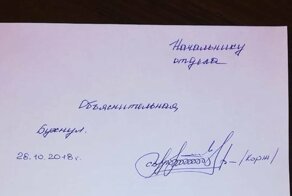 Начальнику
отдела
Объяснительная
Бухнул.
26.10.2018г.
/Корж/